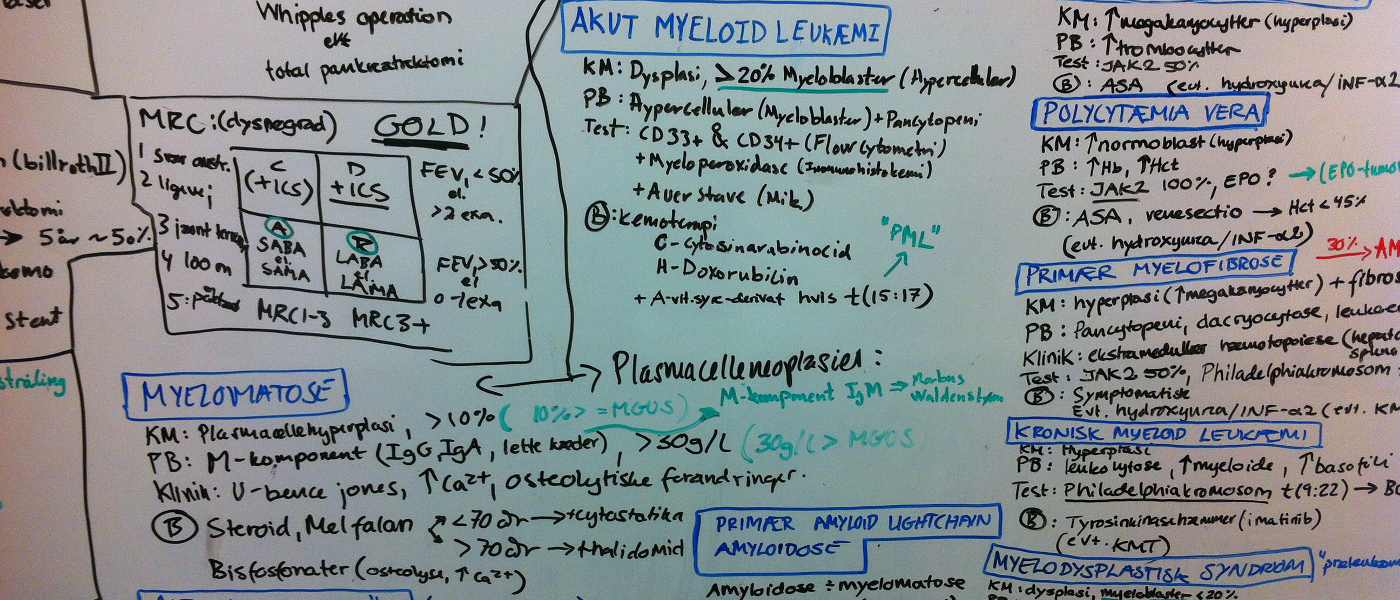 Whipples operation
total pankreatektomi
MRC: (dysnegrad) GOLD!
1 Svær anstr.
2 ligne i
4 100 m
C
(+ICS)
D
+ICS
FEV₁ < 50%
el.
>2 exa.
A
SABA
el.
SAMA
B
LABA
el.
LAMA
FEV₁ > 50%
el
0-1 exa
MRC1-3 MRC3+
(billroth II)
5 år ~ 50%
Stent
stråling
AKUT MYELOID LEUKÆMI
KM: Dysplasi, ≥20% Myeloblaster (Hypercellulær)
PB: Hypercellulær (Myeloblaster) + Pancytopeni
Test: CD33+ & CD34+ (Flowcytometri)
+ Myeloperoxidase (Immunohistokemi)
+ Auer stave (Mik)
Ⓑ: Kemoterapi
C - Cytosinarabinocid
H - Doxorubilin
+ A-vit.syre-derivat hvis t(15:17)
"PML"
Plasmacelleneoplasier:
MYELOMATOSE
KM: Plasmacellehyperplasi, >10% (10% > = MGUS)
M-komponent IgM ⇒ Morbus
Waldenstrøm
PB: M-komponent (IgG, IgA, lette kæder), >30g/L (30g/L > MGUS
Klinik: U-bence jones, ↑Ca²⁺, osteolytiske forandringer.
Ⓑ Steroid, Melfalan <70 år → +cytostatika
>70 år → +thalidomid
Bisfosfonater (osteolyse, ↑Ca²⁺)
PRIMÆR AMYLOID LIGHTCHAIN
AMYLOIDOSE
Amyloidose ÷ myelomatose
KM: ↑megakaryocytter (hyperplasi)
PB: ↑trombocytter
Test: JAK2 50%
Ⓑ: ASA (evt. hydroxyurea/INF-α2
POLYCYTÆMIA VERA
KM: ↑normoblast (hyperplasi)
PB: ↑Hb, ↑Hct
Test: JAK2 100%, EPO? → (EPO-tumor
Ⓑ: ASA, venesectio → Hct < 45%
(evt. hydroxyurea/INF-α2)
30% → AM
PRIMÆR MYELOFIBROSE
KM: hyperplasi (↑megakaryocytter) + fibros
PB: Pancytopeni, dacryocytase, leukoe
Klinik: ekstramedullær hæmatopoiese (hepato
spleno
Test: JAK2 50%, Philadelphiakromosom
Ⓑ: Symptomatisk
Evt. hydroxyurea/INF-α2 (evt. KM
KRONISK MYELOID LEUKÆMI
KM: Hyperplasi
PB: leukocytose, ↑myeloide, ↑basofili
Test: Philadelphiakromosom t(9:22) → BC
Ⓑ: Tyrosinkinasehæmmer (imatinib)
(evt. KMT)
MYELODYSPLASTISK SYNDROM "præleukæm
KM: dysplasi, myeloblaster <20%